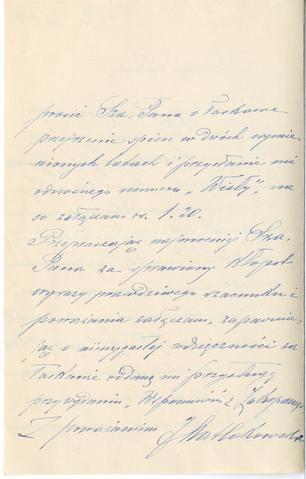 prosić Sza. Pana o łaskawe
przejrzenie spisu w dwóch wymie-
nionych latach i przysłanie mi
odnośnego numeru „Wisły”, na
co załączam rs. 1.20.
Przepraszając najmocniej Sza.
Pana za sprawiony kłopot
wyrazy prawdziwego szacunku i
poważania załączam, zapewnia-
jąc o niewygasłej wdzięczności za
łaskawie oddaną mi przysługę
przy wydaniu „Wspomnień z Zakopanego”
Z poważaniem J Matlakowska